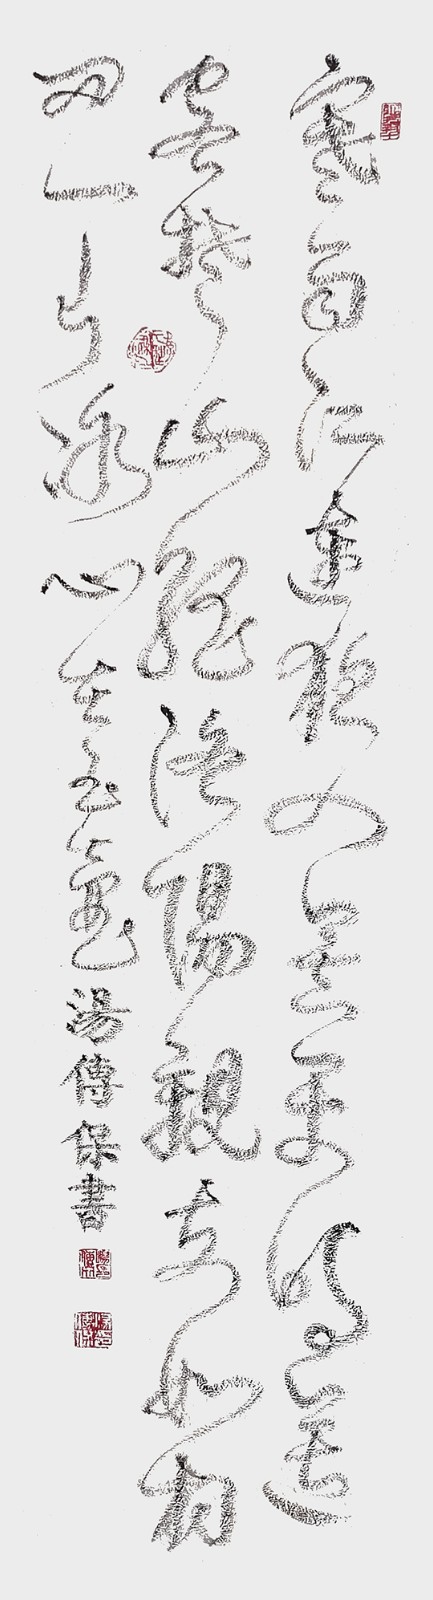 寒雨江連夜入吳平明送
客楚山孤洛陽親友如相
問一片冰心在玉壺湯傳保書